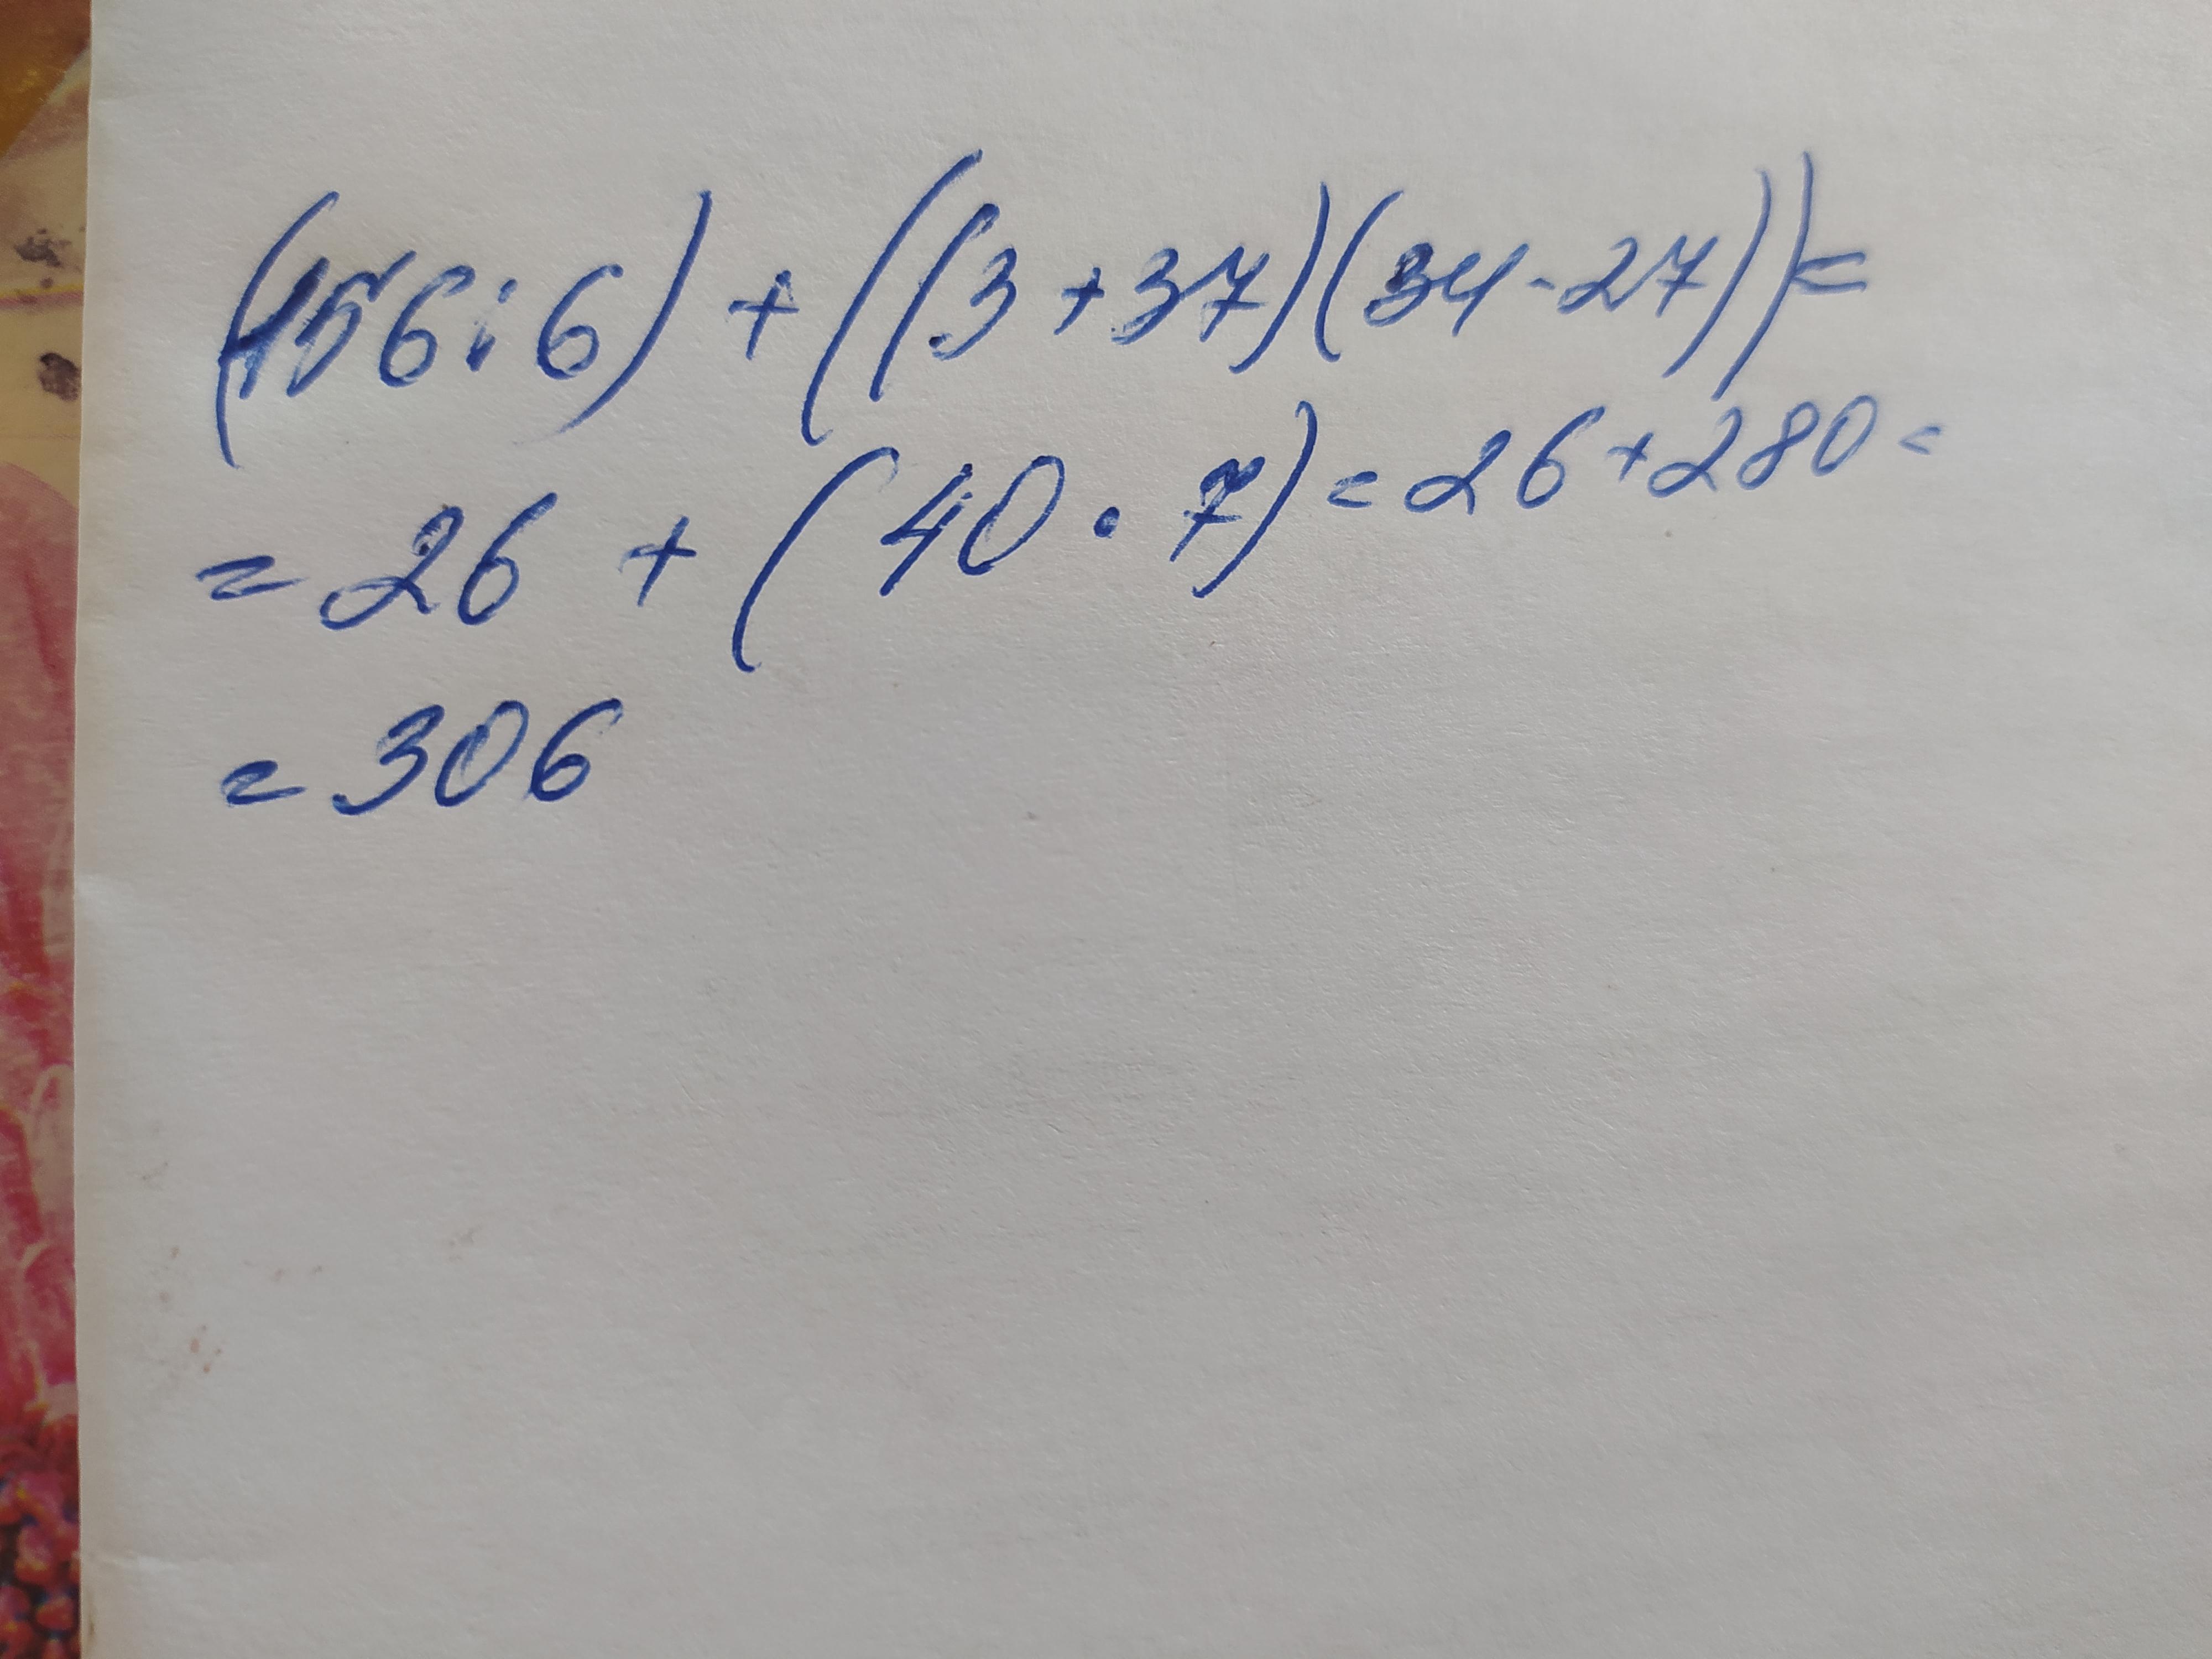 (156:6)+((3+37)(34-27))=
=26+(40·7)=26+280=
=306